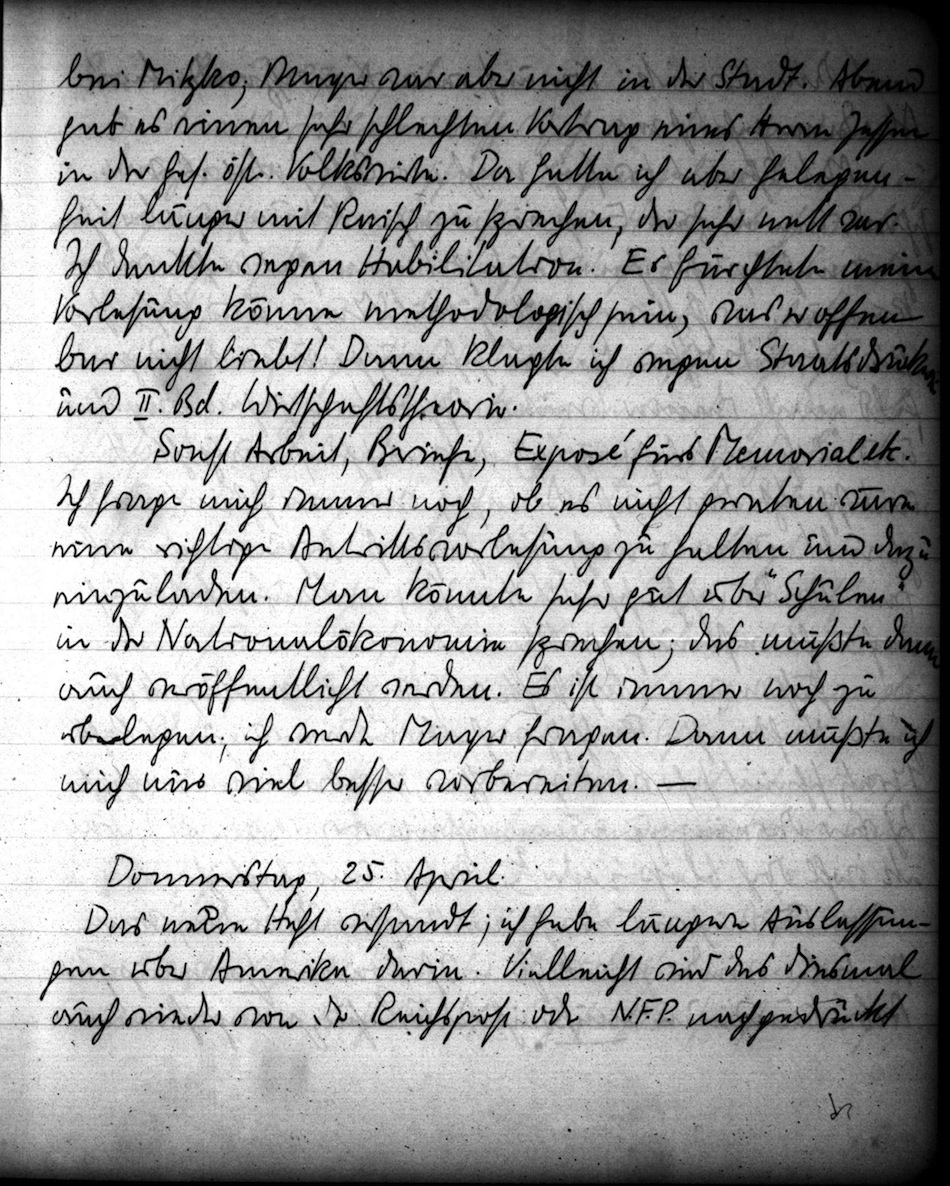 bei Mitzko; Mayer war aber nicht in der Stadt. Abend
gab es einen sehr schlechten Vortrag eines Herrn Jessen
in der Ges. öst. Volkswirte. Da hatte ich aber Gelegen-
heit länger mit Reisch zu sprechen, der sehr nett war.
Ich dankte wegen Habilitation. Er fürchtete meine
Vorlesung könne methodologisch sein, was er offen
bar nicht liebt! Dann klagte ich wegen Staatsdruckerei
und II. Bd. Wirtschaftstheorie.
Sonst Arbeit, Briefe, Exposé fürs Memorial etc.
Ich frage mich immer noch, ob es nicht geraten wäre
eine richtige Antrittsvorlesung zu halten und dazu
einzuladen. Man könnte sehr gut über "Schulen"
in der Nationalökonomie sprechen; das müßte dann
auch veröffentlicht werden. Es ist immer noch zu
überlegen; ich werde Mayer fragen. Dann müßte ich
mich uns viel besser vorbereiten. —
Donnerstag, 25. April.
Das neue Heft versandt; ich habe längere Auslassun-
gen über Amerika darin. Vielleicht wird das diesmal
auch wieder von der Reichspost oder N.F.P. nachgedruckt